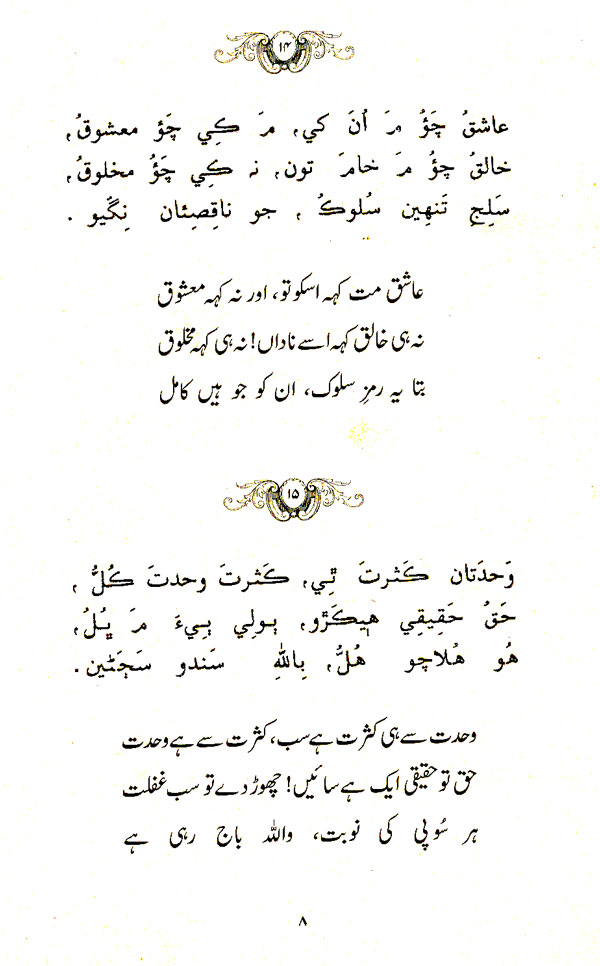 ۱۴
عاشقُ چَؤُ مَ اُنَ کي، مَ ڪِي چَؤ معشوقُ،
خالقُ چؤُ مَ خامَ تون، نہ ڪِي چَؤُ مخلوقُ،
سَلِجِ تَنھِين سُلوڪُ، جو ناقِصِئان نِگَيو.
عاشق مت کہہ اسکو تو، اور نہ کہہ معشوق
نہ ہی خالق کہہ اسے ناداں! نہ ہی کہہ مخلوق
بتا یہ رمزِ سلوک، ان کو جو ہیں کامل
۱۵
وَحدَتان ڪَثرتَ ٿِي، ڪَثرتَ وحدتَ ڪُلُّ،
حَقُ حَقِيقِي هيڪَڙو، ٻولِي ٻِيءَ مَ ڀُلُ،
هُو هُلاچو هُلُّ، بِاللهِ سَندو سَڄَڻين.
وحدت سے ہی کثرت ہے سب، کثرت سے ہے وحدت
حق تو حقیقی ایک ہے سائیں! چھوڑ دے تو سب غفلت
ہر سُو پی کی نوبت، واللہ باج رہی ہے
۸